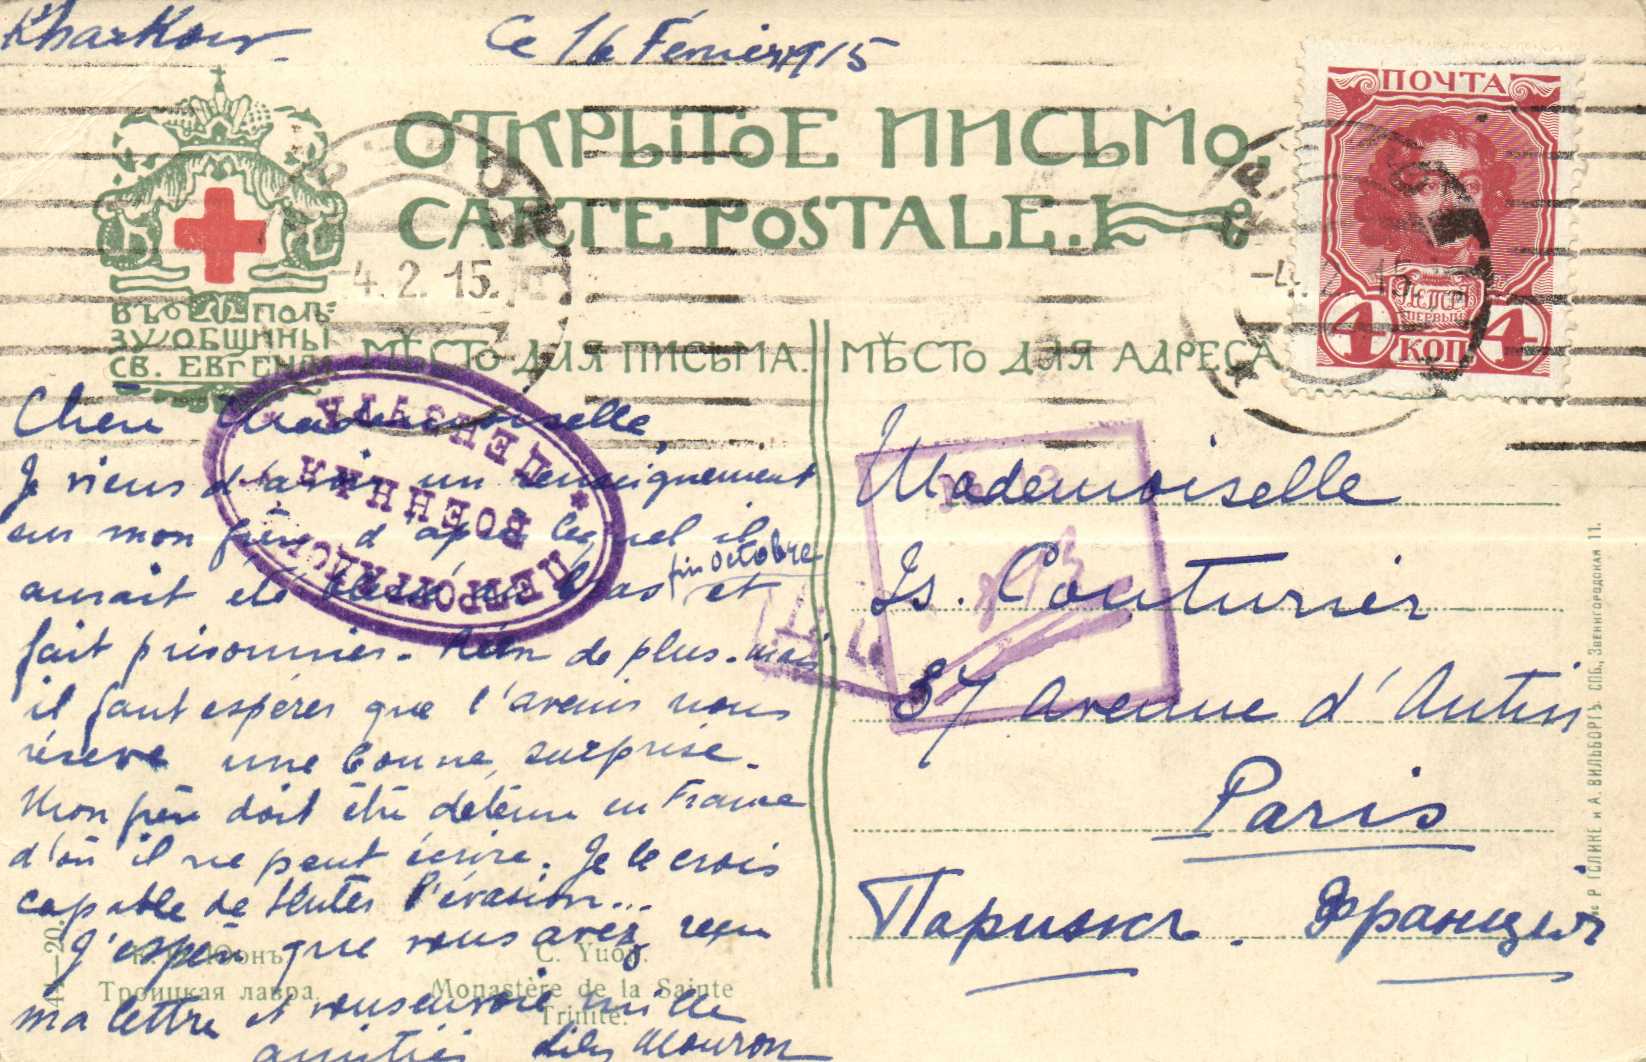 Kharkow
Ce 16 Février 1915
ОТКРЫТОЕ ПИСЬМО.
CARTE POSTALE.
ПОЧТА
4 КОП. 4
ПЕРВЫЙ
4.2.15.
ВЪ ПОЛЬ-
ЗУ ОБЩИНЫ
СВ. ЕВГЕНІИ
МѢСТО ДЛЯ ПИСЬМА.
МѢСТО ДЛЯ АДРЕСА
ПЕТРОГРАДСК.
ВОЕННАЯ
ЦЕНЗУРА
Chère Mademoiselle,
Je viens d'avoir un renseignement
sur mon frère d'après lequel il
aurait été blessé au bras fin octobre et
fait prisonnier. Rien de plus. mais
il faut espérer que l'avenir nous
réserve une bonne surprise.
Mon frère doit être détenu en France
d'où il ne peut écrire. Je le crois
capable de tenter l'évasion...
J'espère que vous avez reçu
ma lettre et vous envoie mille
amitiés Lily Mouron
Mademoiselle
Is. Couturier
37 avenue d'Antin
Paris
Парижъ. Франція
Юонъ.
Троицкая лавра.
C. Yuon.
Monastère de la Sainte
Trinité.
Р. ГОЛИКЕ и А. ВИЛЬБОРГЪ. СПБ., Звенигородская 11.